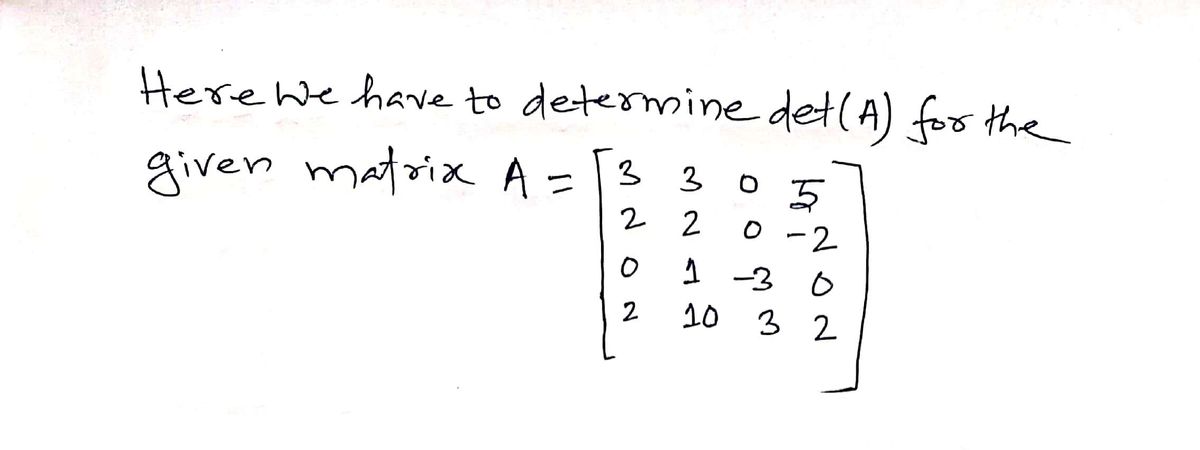 Here we have to determine det(A) for the
given matrix A = [3 3 0 5
2 2 0 -2
0 1 -3 0
2 10 3 2]